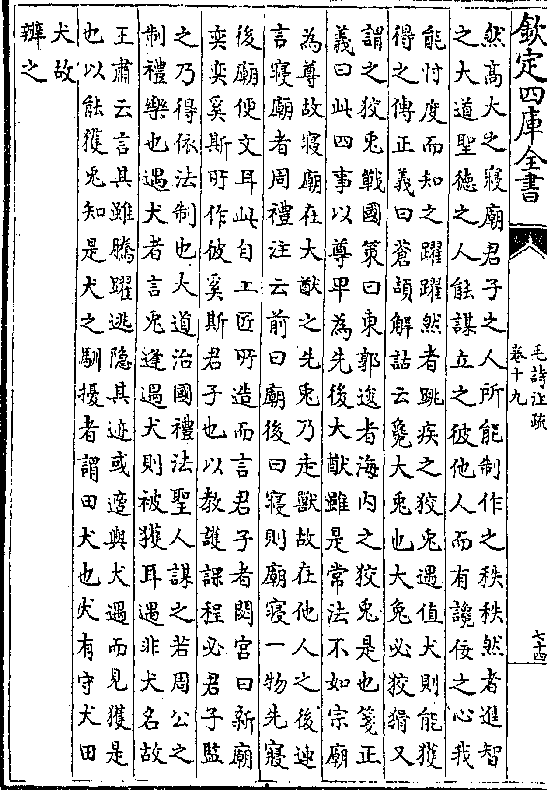 欽定四庫全書
毛詩注疏
卷十九
七十四
然高大之寢廟君子之人所能制作之秩秩然者進智
之大道聖德之人能謀立之彼他人而有讒佞之心我
能忖度而知之躍躍然者跳疾之狡兎遇值犬則能獲
得之傳正義曰蒼頡解詁云毚大兎也大兎必狡猾又
謂之狡兎戰國策曰東郭逡者海内之狡兎是也箋正
義曰此四事以尊卑為先後大猷雖是常法不如宗廟
為尊故寢廟在大猷之先兎乃走獸故在他人之後連
言寢廟者周禮注云前曰廟後曰寢則廟寢一物先寢
後廟便文耳此自工匠所造而言君子者閟宮曰新廟
奕奕奚斯所作彼奚斯君子也以教護課程必君子監
之乃得依法制也大道治國禮法聖人謀之若周公之
制禮樂也遇犬者言兎逢遇犬則被獲耳遇非犬名故
王肅云言其雖騰躍逃隱其迹或適與犬遇而見獲是
也以能獲兎知是犬之馴擾者謂田犬也犬有守犬田
犬故
辨之